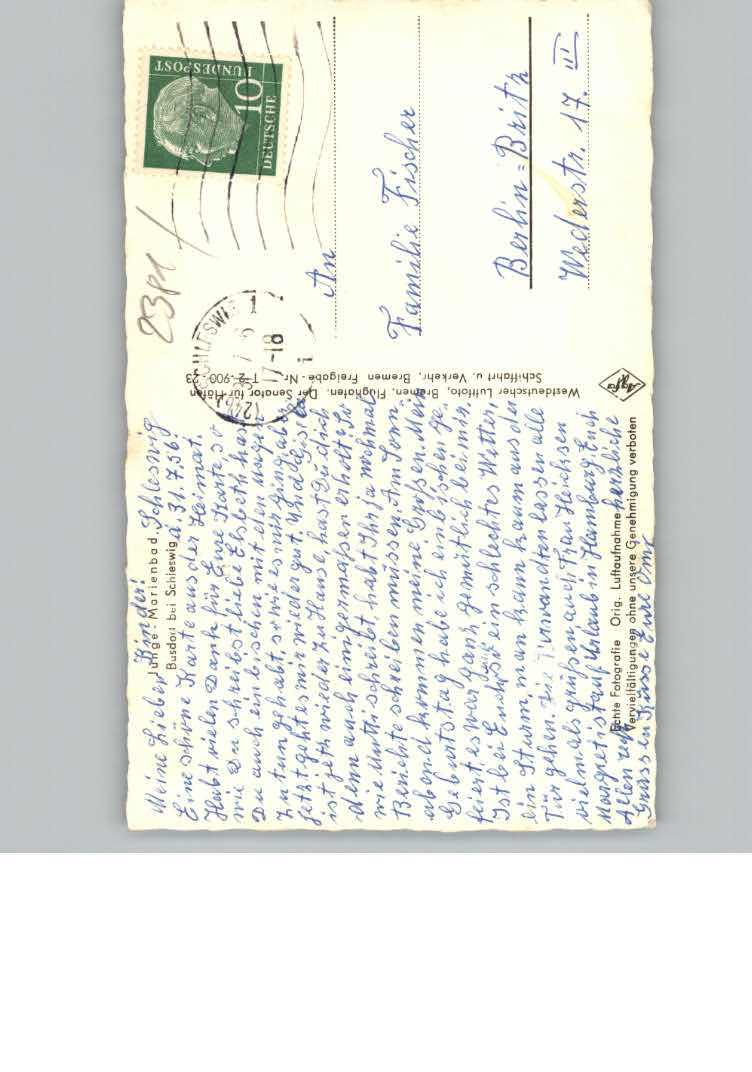 Junge-Marienbad, Schleswig
Busdorf bei Schleswig d. 31.7.56.
Meine Lieben Kinder!
Eine schöne Karte aus der Heimat.
Habt vielen Dank für Eure Karte so
wie Du schreibst liebe Elsbeth hast
Du auch ein bischen mit den
zu tun gehabt, so wie es mir ging aber
jetzt geht es mir wieder gut. Und
ist jetzt wieder zu Hause, hast Du dich
denn auch einigermaßen erholt so
wie Mutti schreibt habt Ihr ja wohl mal
Berichte schreiben müssen. Am Sonn
abend kommen meine Großen. Mein
Geburtstag habe ich ein bischen ge,
feiert es war ganz gemütlich bei mir.
Ist bei Euch so ein schlechtes Wetter,
ein Sturm, man kann kaum aus der
Tür gehen. Die Verwandten lassen alle
vielmals grüßen auch Frau Hinrichsen
Margret ist auf Urlaub in Hamburg Euch
Allen recht herzliche
Grüsse u Küsse Eure Omi
Echte Fotografie Orig. Luftaufnahme
Vervielfältigungen ohne unsere Genehmigung verboten
Westdeutscher Luftfoto, Bremen, Flughafen. Der Senator für Häfen
Schiffahrt u. Verkehr, Bremen Freigabe-Nr. T-2-900-23
Agfa
2381
SCHLESWIG 1
17-18
DEUTSCHE
10
BUNDESPOST
An
Familie Fischer
Berlin=Britz
Wederstr. 17. III